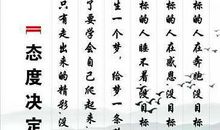 标的人在奔跑没目标
标的人在感恩没目标
标的人睡不着没目标
生一个梦，给梦一条
了要学会自己爬起来，
只有走出来的精彩，没
态度决定